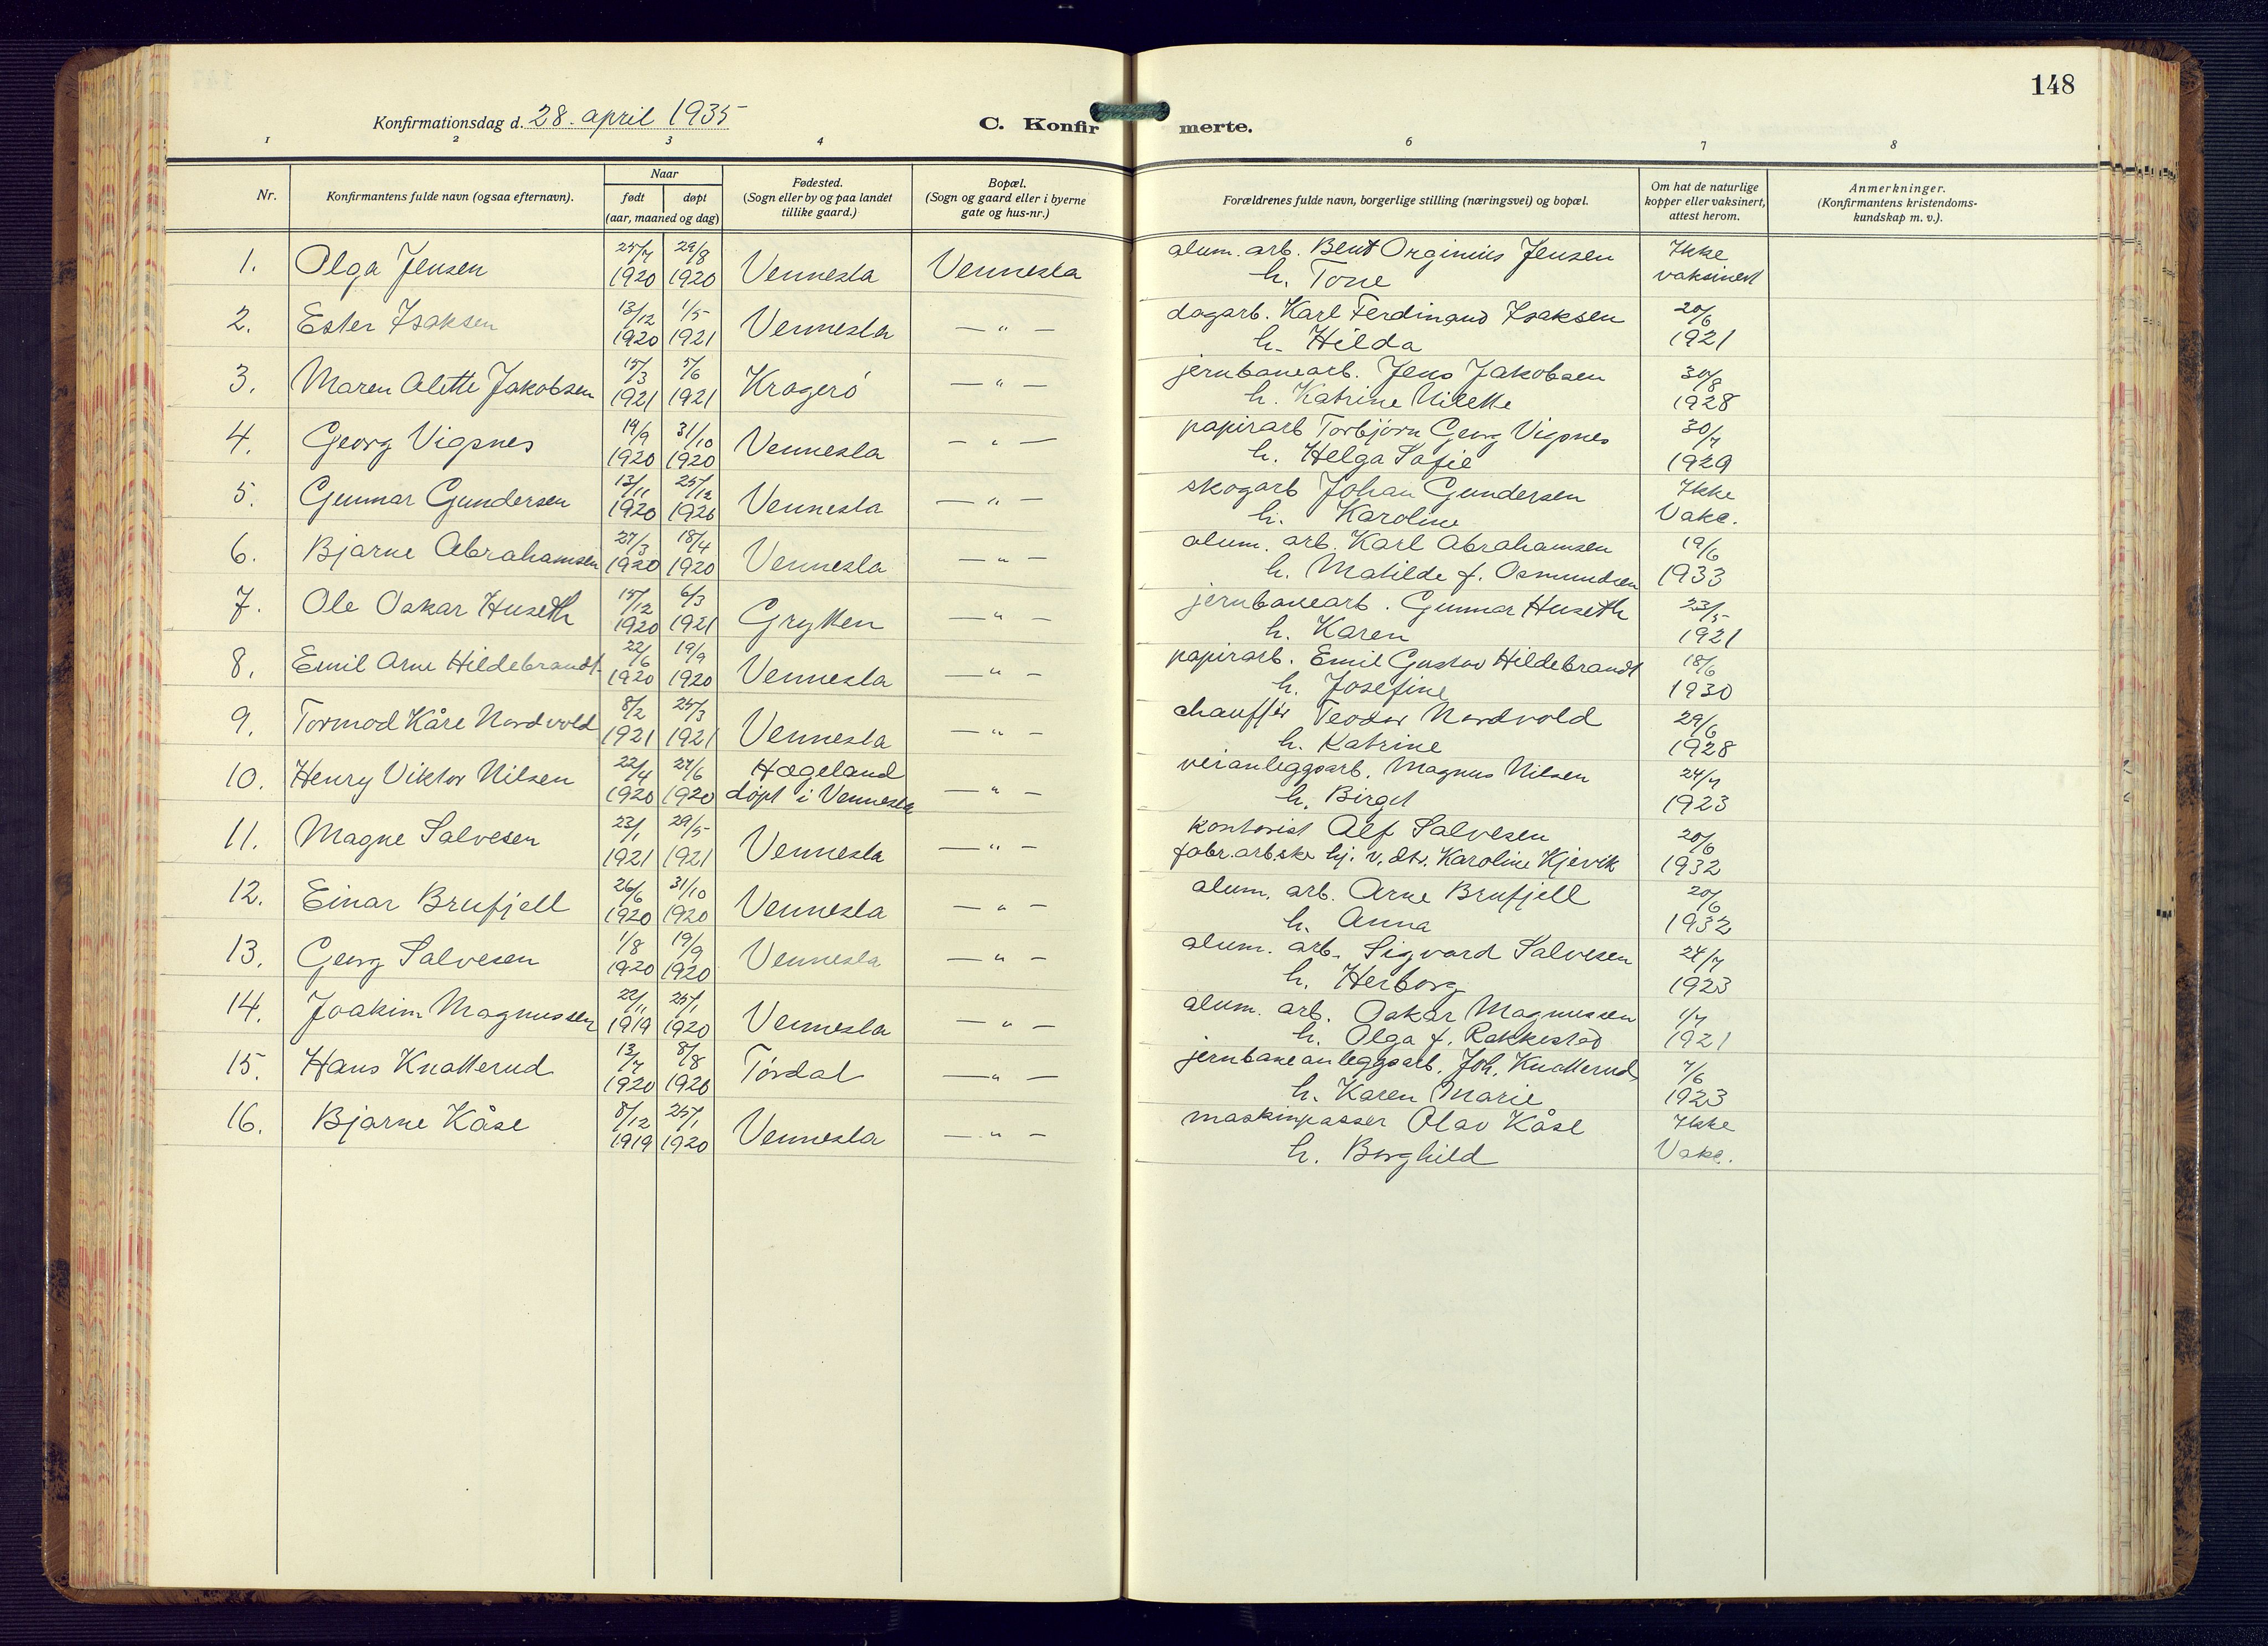 148
Konfirmationsdag d. 28. april 1935
C. Konfirmerte.
1 2 3 4 6 7 8
Nr.
Konfirmantens fulde navn (ogsaa efternavn).
Naar
født døpt
(aar, maaned og dag)
Fødested.
(Sogn eller by og paa landet
tillike gaard.)
Bopæl.
(Sogn og gaard eller i byerne
gate og hus-nr.)
Forældrenes fulde navn, borgerlige stilling (næringsvei) og bopæl.
Om hat de naturlige
kopper eller vaksinert,
attest herom.
Anmerkninger.
(Konfirmantens kristendoms-
kundskap m. v.).
1. Olga Jensen 25/7 1920 29/8 1920 Vennesla Vennesla alum. arb. Bent Orginius Jensen Ikke
h. Tone vaksinert
2. Ester Isaksen 13/12 1920 1/5 1921 Vennesla — " — dagarb. Karl Ferdinand Isaksen 20/6
h. Hilda 1921
3. Maren Alette Jakobsen 15/3 1921 5/6 1921 Kragerö — " — jernbanearb. Jens Jakobsen 30/8
h. Katrine Nilette 1928
4. Georg Vigsnes 19/9 1920 31/10 1920 Vennesla — " — papirarb Torbjörn Georg Vigsnes 30/7
h. Helga Sofie 1929
5. Gunnar Gundersen 13/11 1920 25/12 1920 Vennesla — " — skogarb Johan Gundersen Ikke
h. Karoline Vakc.
6. Bjarne Abrahamsen 27/3 1920 18/4 1920 Vennesla — " — alum. arb. Karl Abrahamsen 19/6
h. Matilde f. Osmundsen 1933
7. Ole Oskar Huseth 15/12 1920 6/3 1921 Grytten — " — jernbanearb. Gunnar Huseth 23/5
h. Karen 1921
8. Emil Arne Hildebrandt 22/6 1920 19/9 1920 Vennesla — " — papirarb. Emil Gustav Hildebrandt 18/6
h. Josefine 1930
9. Tormod Kåre Nordvold 8/2 1921 25/3 1921 Vennesla — " — chaufför Teodor Nordvold 29/6
h. Katrine 1928
10. Henry Viktor Nilsen 22/4 1920 27/6 1920 Hægeland — " — veianleggsarb. Magnus Nilsen 24/7
döpt i Vennesla h. Birgit 1923
11. Magne Salvesen 23/1 1921 29/5 1921 Vennesla — " — kontorist Alf Salvesen 20/6
fabr.arb.ske hj. v. dtr. Karoline Kjevik 1932
12. Einar Brufjell 26/6 1920 31/10 1920 Vennesla — " — alum. arb. Arne Brufjell 20/6
h. Anna 1932
13. Georg Salvesen 1/8 1920 19/9 1920 Vennesla — " — alum. arb. Sigvard Salvesen 24/7
h. Herborg 1923
14. Joakim Magnussen 22/11 1919 25/1 1920 Vennesla — " — alum. arb. Oskar Magnussen 1/7
h. Olga f. Rakkestad 1921
15. Hans Knatterud 13/7 1920 8/8 1920 Tørdal — " — jernbaneanleggsarb. Joh. Knatterud 7/6
h. Karen Marie 1923
16. Bjarne Kåse 8/12 1919 25/1 1920 Vennesla — " — maskinpasser Olav Kåse Ikke
h. Borghild Vakc.